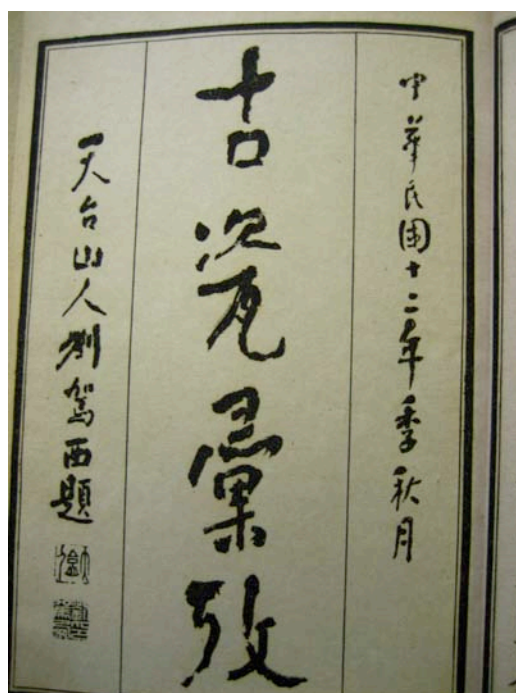 中華民國十二年季秋月
古瓷彙攷
天台山人劉駕西題